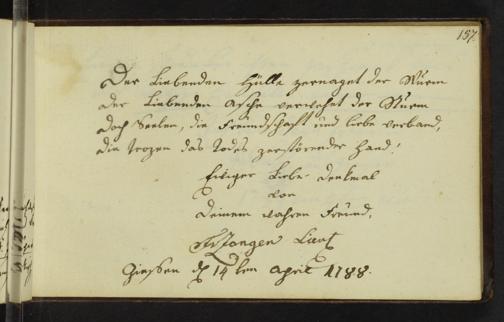 157.
Der Liebenden Hülle zernaget der Wurm
der Liebenden Asche verwehet der Sturm
doch Seelen, die Freundschaft und liebe verband,
die trozen des Todes zerstörender Hand!
Ewiger Liebe denkmal
von
deinem wahren Freund,
Giessen d 14 ten April 1788.